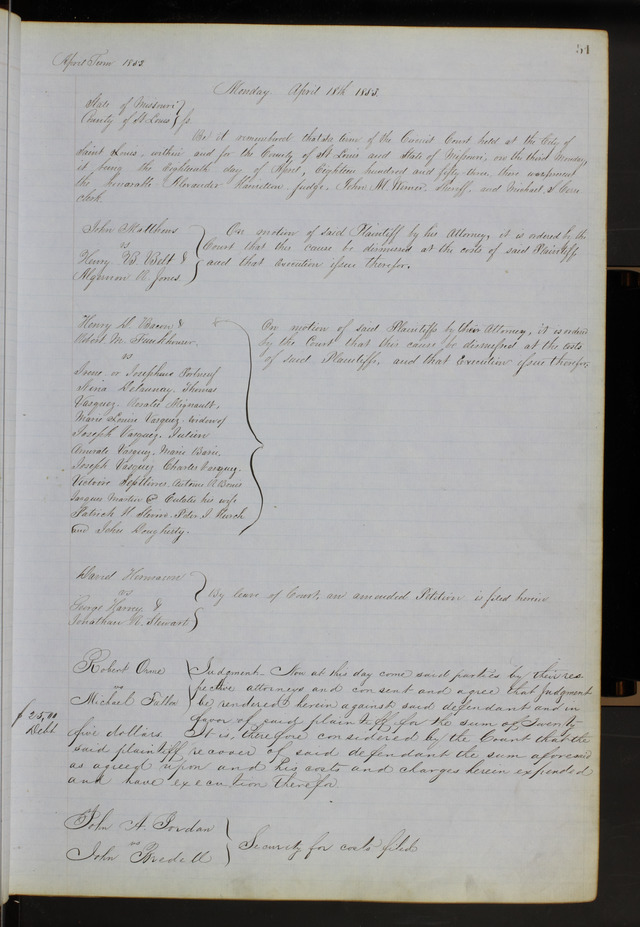 51
April Term 1853
Monday April 18th 1853.
State of Missouri
County of St Louis } ss.
Be it remembered that at a term of the Circuit Court held at the City of
Saint Louis, within and for the County of St Louis and State of Missouri, on the third Monday,
it being the Eighteenth day of April, Eighteen hundred and fifty three, there was present
the honorable Alexander Hamilton judge, John M. sheriff and Michael S.
clerk.
John Matthews
vs
Henry B. Belt &
Algernon R. Jones.
On motion of said Plaintiff by his Attorney, it is ordered by the
Court that this cause be dismissed at the costs of said Plaintiff
and that execution issue therefor.
Henry D. Bacon &
Robert M.
vs
Irene or Josephine
Delaunay, Thomas
Vasquez, Rosalie
Marie Louise Vasquez widow of
Joseph Vasquez, Julien
Vasquez, Marie
Joseph Vasquez Charles Vasquez,
Victoire Antoine R.
Jacques Martin & Eulalie his wife
Patrick H. Peter J.
and John Dougherty.
On motion of said Plaintiffs by their Attorney, it is ordered
by the Court that this cause be dismissed at the costs
of said Plaintiffs, and that Execution issue therefor,
David Hermann
vs
George Harvey, &
Jonathan R. Stewart
By leave of Court, an amended Petition is filed herein
Robert Orme
vs
Michael Fallon
Judgment Now at this day come said parties by their res-
pective attorneys and consent and agree that Judgment
be rendered herein against said defendant and in
favor of said plaintiff for the sum of twenty
$25,00
Debt
five dollars. It is, therefore considered by the Court that the
said plaintiff recover of said defendant the sum aforesaid
as agreed upon and his costs and charges herein expended
and have execution therefor
John A. Jordan
vs
John Bredell
Security for costs filed